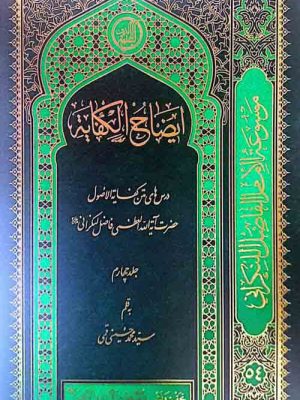 ایضاح الکفایة
درس‌های متن کفایة الاصول
حضرت آیة الله العظمی فاضل لنکرانی
جلد چهارم
به قلم
سید محمد حسینی قمی
موسوعة الامام الفاضل اللنکرانی
٥٤